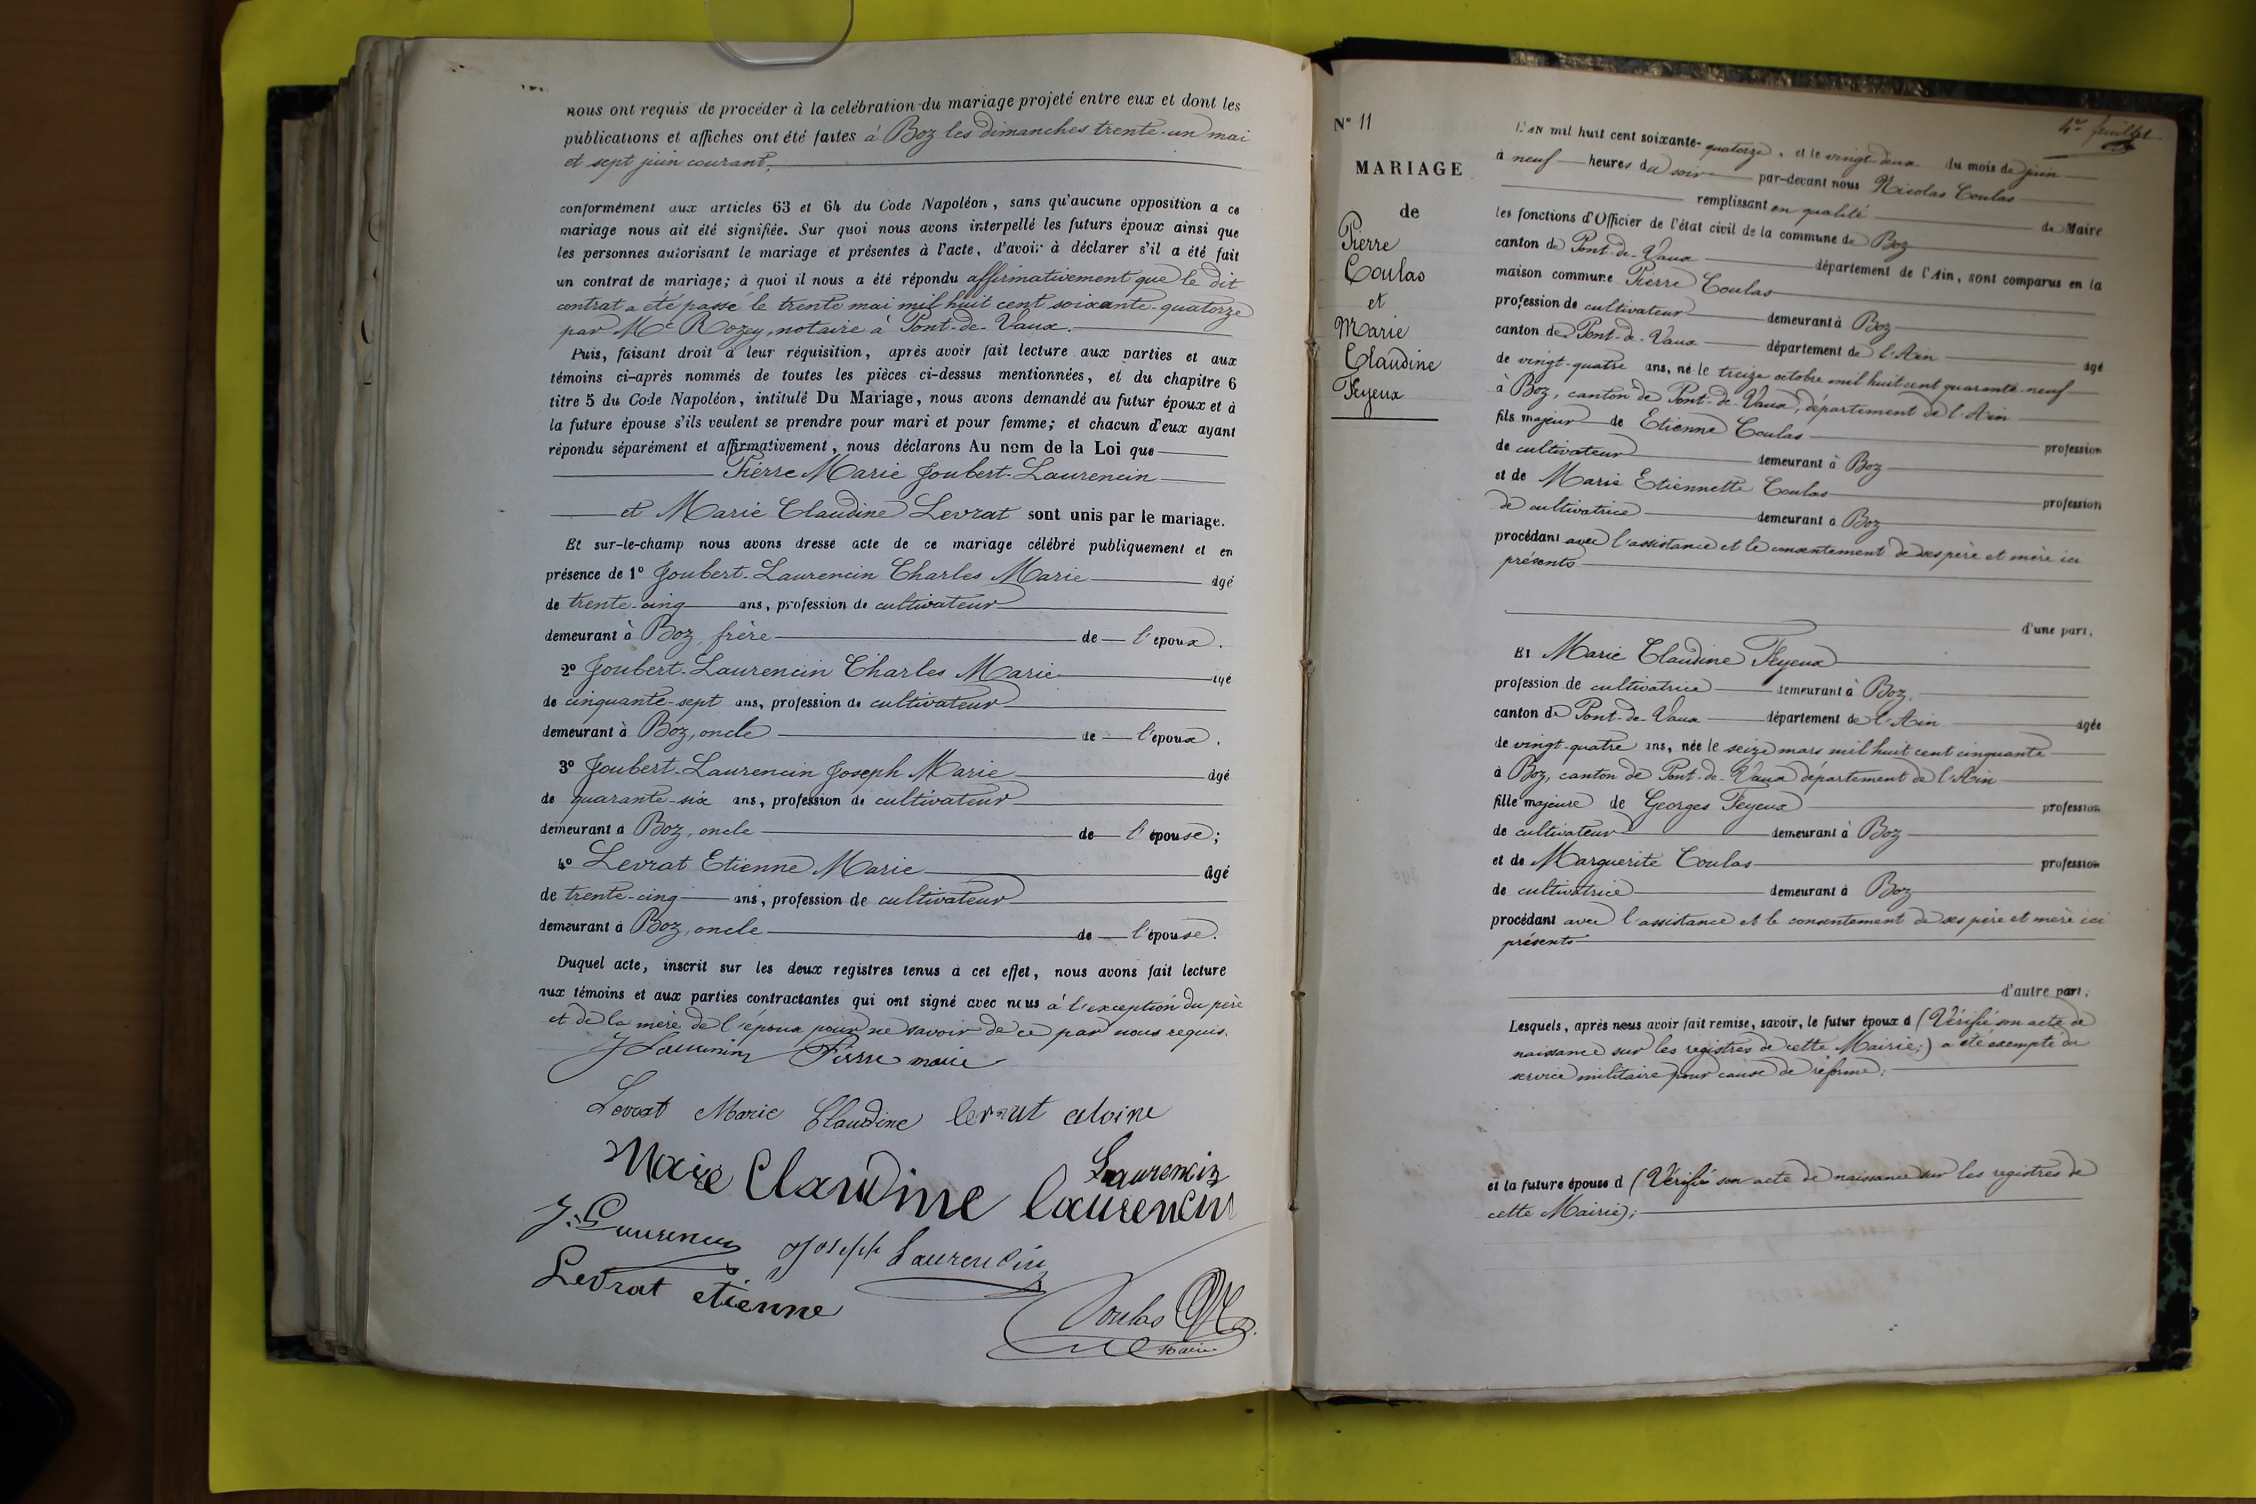 nous ont requis de procéder à la celébration du mariage projeté entre eux et dont les
publications et affiches ont été faites à Boz les dimanches trente-un mai
et sept juin courant,
conformément aux articles 63 et 64 du Code Napoléon, sans qu'aucune opposition a ce
mariage nous ait été signifiée. Sur quoi nous avons interpellé les futurs époux ainsi que
les personnes autorisant le mariage et présentes à l'acte, d'avoir à déclarer s'il a été fait
un contrat de mariage; à quoi il nous a été répondu affirmativement que le dit
contrat a été passé le trente mai mil huit cent soixante-quatorze
par Me Rozey, notaire à Pont-de-Vaux.
Puis, faisant droit à leur réquisition, après avoir fait lecture aux parties et aux
témoins ci-après nommés de toutes les pièces ci-dessus mentionnées, et du chapitre 6
titre 5 du Code Napoléon, intitulé Du Mariage, nous avons demandé au futur époux et à
la future épouse s'ils veulent se prendre pour mari et pour femme; et chacun d'eux ayant
répondu séparément et affirmativement, nous déclarons Au nom de la Loi que
Pierre Marie Joubert-Laurencin
et Marie Claudine Levrat sont unis par le mariage.
Et sur-le-champ nous avons dresse acte de ce mariage célébré publiquement et en
présence de 1° Joubert-Laurencin Charles Marie âgé
de trente-cinq ans, profession de cultivateur
demeurant à Boz, frère de l'époux.
2° Joubert-Laurencin Charles Marie âgé
de cinquante-sept ans, profession de cultivateur
demeurant à Boz, oncle de l'époux.
3° Joubert-Laurencin Joseph Marie âgé
de quarante-six ans, profession de cultivateur
demeurant à Boz, oncle de l'épouse;
4° Levrat Etienne Marie âgé
de trente-cinq ans, profession de cultivateur
demeurant à Boz, oncle de l'épouse.
Duquel acte, inscrit sur les deux registres tenus à cet effet, nous avons fait lecture
aux témoins et aux parties contractantes qui ont signé avec nous à l'exception du père
et de la mère de l'époux pour ne savoir de ce par nous requis.
J Laurencin Pierre marie
Levrat Marie Claudine levrat
Laurencin
Marie Claudine laurencin
J. Laurencin Joseph Laurencin
Levrat etienne
Coulas
Maire
4e feuillet
N° 11
MARIAGE
de
Pierre
Coulas
et
Marie
Claudine
Feyeux
L'AN mil huit cent soixante-quatorze, et le vingt-deux du mois de juin
à neuf heures du soir par-devant nous Nicolas Coulas
remplissant en qualité de Maire
les fonctions d'Officier de l'état civil de la commune de Boz
canton de Pont-de-Vaux département de l'Ain, sont comparus en la
maison commune Pierre Coulas
profession de cultivateur demeurant à Boz
canton de Pont-de-Vaux département de l'Ain âgé
de vingt-quatre ans, né le treize octobre mil huit cent quarante-neuf
à Boz, canton de Pont-de-Vaux, département de l'Ain
fils majeur de Etienne Coulas profession
de cultivateur demeurant à Boz
et de Marie Etiennette Coulas profession
de cultivatrice demeurant à Boz
procédant avec l'assistance et le consentement de ses père et mère ici
présents
d'une part,
Et Marie Claudine Feyeux
profession de cultivatrice demeurant à Boz,
canton de Pont-de-Vaux département de l'Ain agée
de vingt-quatre ans, née le seize mars mil huit cent cinquante
à Boz, canton de Pont-de-Vaux département de l'Ain
fille majeure de Georges Feyeux profession
de cultivateur demeurant à Boz
et de Marguerite Coulas profession
de cultivatrice demeurant à Boz
procédant avec l'assistance et le consentement de ses père et mère ici
présents
d'autre part.
Lesquels, après nous avoir fait remise, savoir, le futur époux d (Vérifié son acte de
naissance sur les registres de cette Mairie;) a été exempté du
service militaire pour cause de réforme;
et la future épouse d (Vérifié son acte de naissance sur les registres de
cette Mairie);